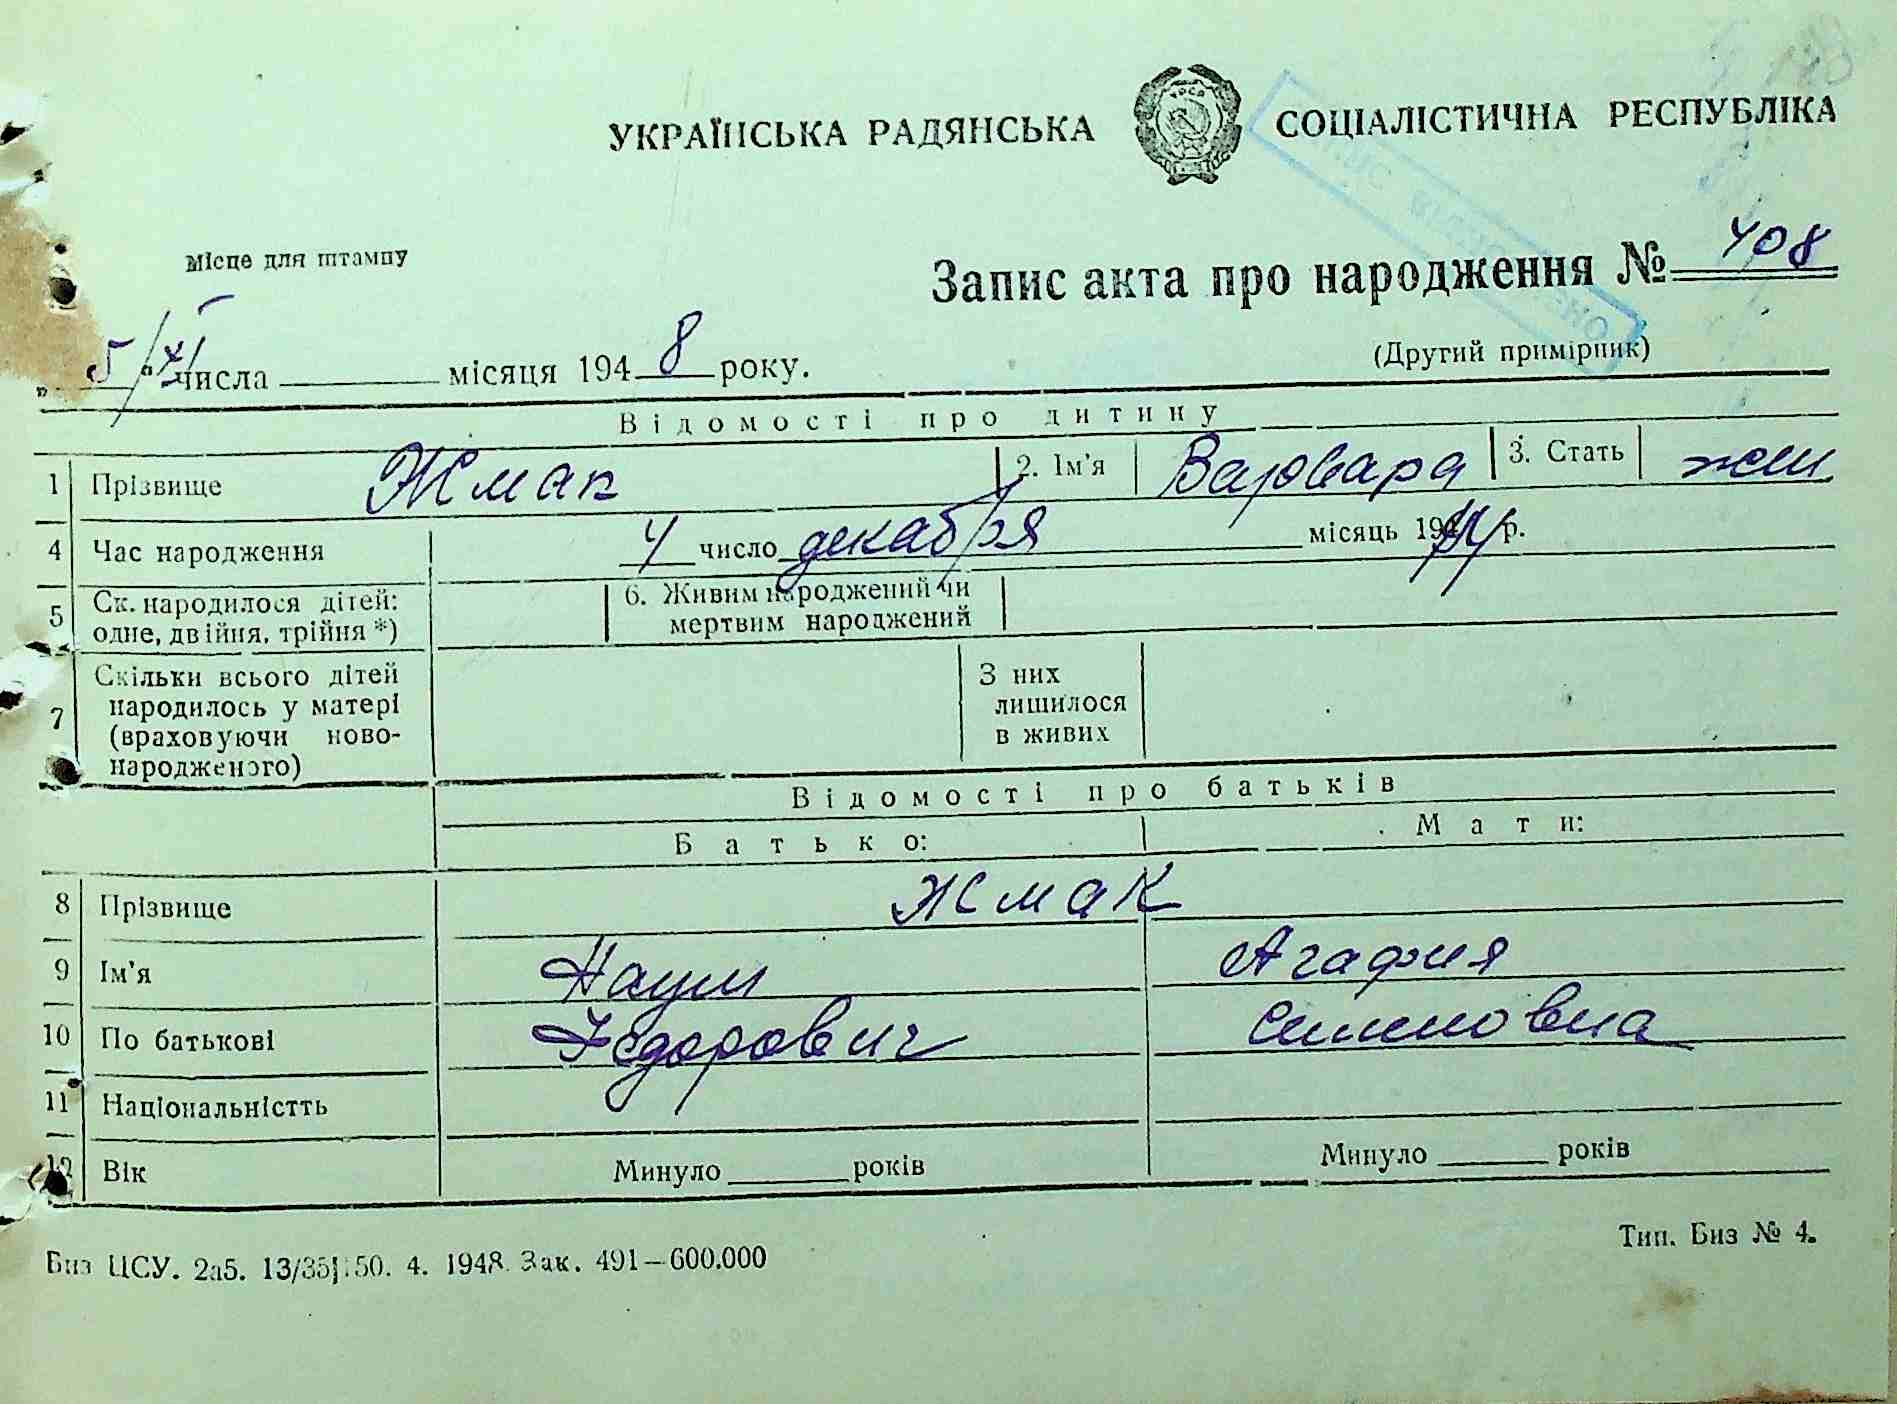 УКРАЇНСЬКА РАДЯНСЬКА СОЦІАЛІСТИЧНА РЕСПУБЛІКА
УРСР
Місце для штампу
Запис акта про народження № 408
(Другий примірник)
„ 5/XI “ числа місяця 1948 року.
Відомості про дитину
1 Прізвище Жмак 2. Ім'я Варвара 3. Стать жен
4 Час народження 4 число декабря місяць 194 р.
5 Ск. народилося дітей: одне, двійня, трійня *) 6. Живим народжений чи мертвим народжений
7 Скільки всього дітей народилось у матері (враховуючи ново-народженого) З них лишилося в живих
Відомості про батьків
Батько: Мати:
8 Прізвище Жмак
9 Ім'я Наум Агафия
10 По батькові Федорович Симоновна
11 Національністть
12 Вік Минуло років Минуло років
Биз ЦСУ. 2а5. 13/35 50. 4. 1948. Зак. 491—600.000 Тип. Биз № 4.